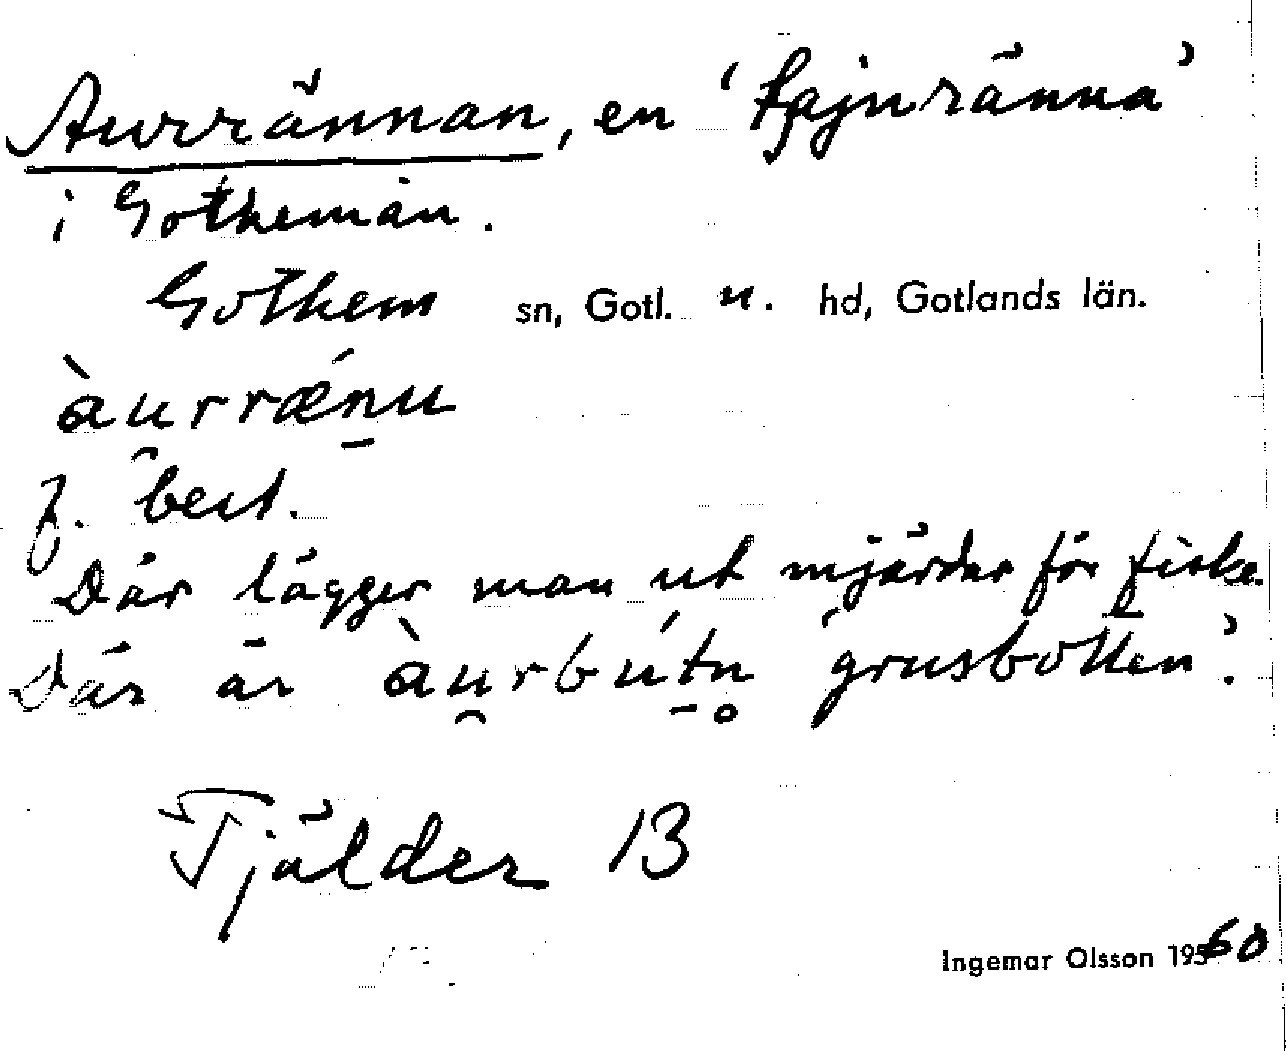 Aurrännan, en 'tjajnränna'
i Gothemån.
Gothem sn, Gotl. n. hd, Gotlands län.
àu̯rrǽn̠u
f. best.
Där lägger man ut mjärdar för fiske.
Där är àu̯rbút̠n̥ 'grusbotten'.
Tjälder 13
Ingemar Olsson 1960